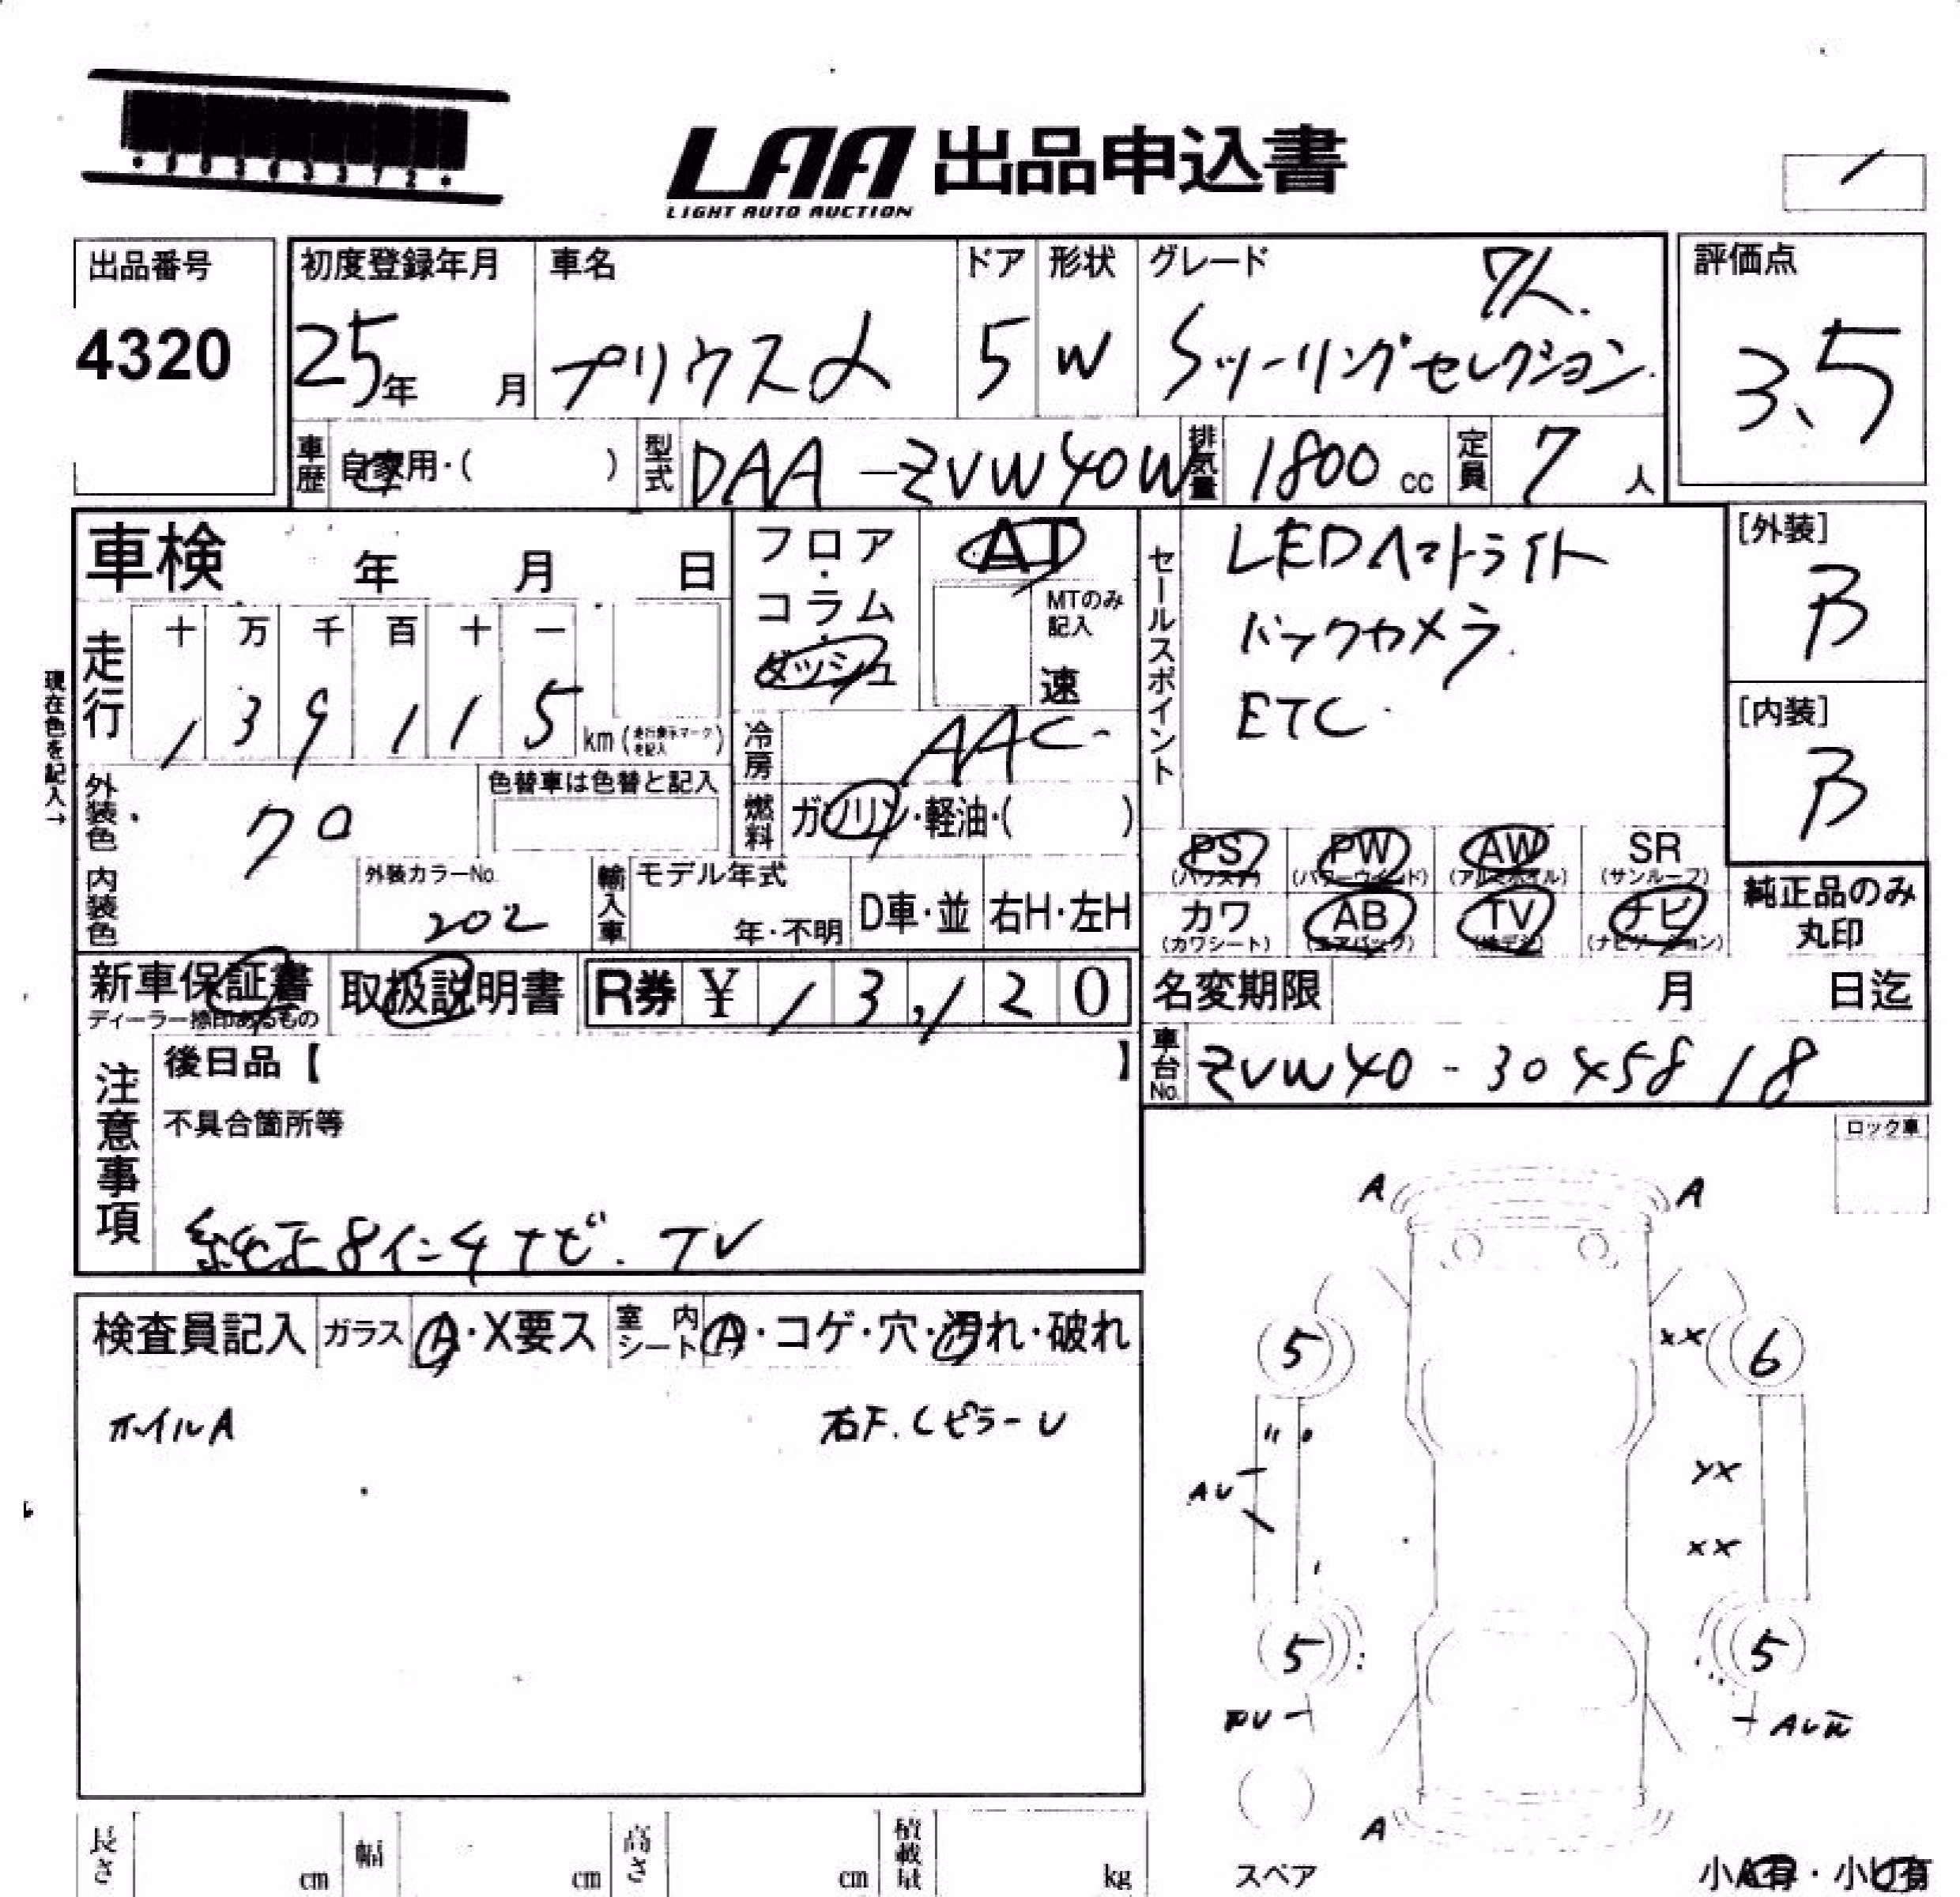 LAA 出品申込書
LIGHT AUTO AUCTION
出品番号
4320
初度登録年月
25年 月
車名
プリウスα
ドア
5
形状
W
グレード
7人.
Sツーリングセレクション.
評価点
3.5
車歴 自家用・( )
型式 DAA-ZVW40W
排気量 1800 cc
定員 7 人
車検 年 月 日
走行 十 万 千 百 十 一
1 3 9 1 1 5 km (走行表示マークを記入)
現在色を記入→
フロア・コラム・ダッシュ
AT
MTのみ記入
速
冷房 AAC
燃料 ガソリン・軽油・( )
セールスポイント
LEDヘッドライト
バックカメラ.
ETC
[外装]
B
[内装]
B
外装色 クロ
色替車は色替と記入
内装色
外装カラーNo.
202
輸入車
モデル年式
年・不明
D車・並
右H・左H
PS (パワステ) PW (パワーウインド) AW (アルミホイル) SR (サンルーフ)
カワ (カワシート) AB (エアバッグ) TV (地デジ) ナビ (ナビゲーション)
純正品のみ
丸印
新車保証書
ディーラー捺印あるもの
取扱説明書
R券 ¥ 13,120
名変期限 月 日迄
車台No. ZVW40-3045818
注意事項
後日品【 】
不具合箇所等
純正8インチナビ. TV
ロック車
検査員記入 ガラス A・X要ス 室内シート A・コゲ・穴・汚れ・破れ
ホイルA
右F.Cピラー U
A A
5 XX 6
AU
YX
XX
5 5
AU
A
スペア
小A有・小U有
長さ cm 幅 cm 高さ cm 積載量 kg